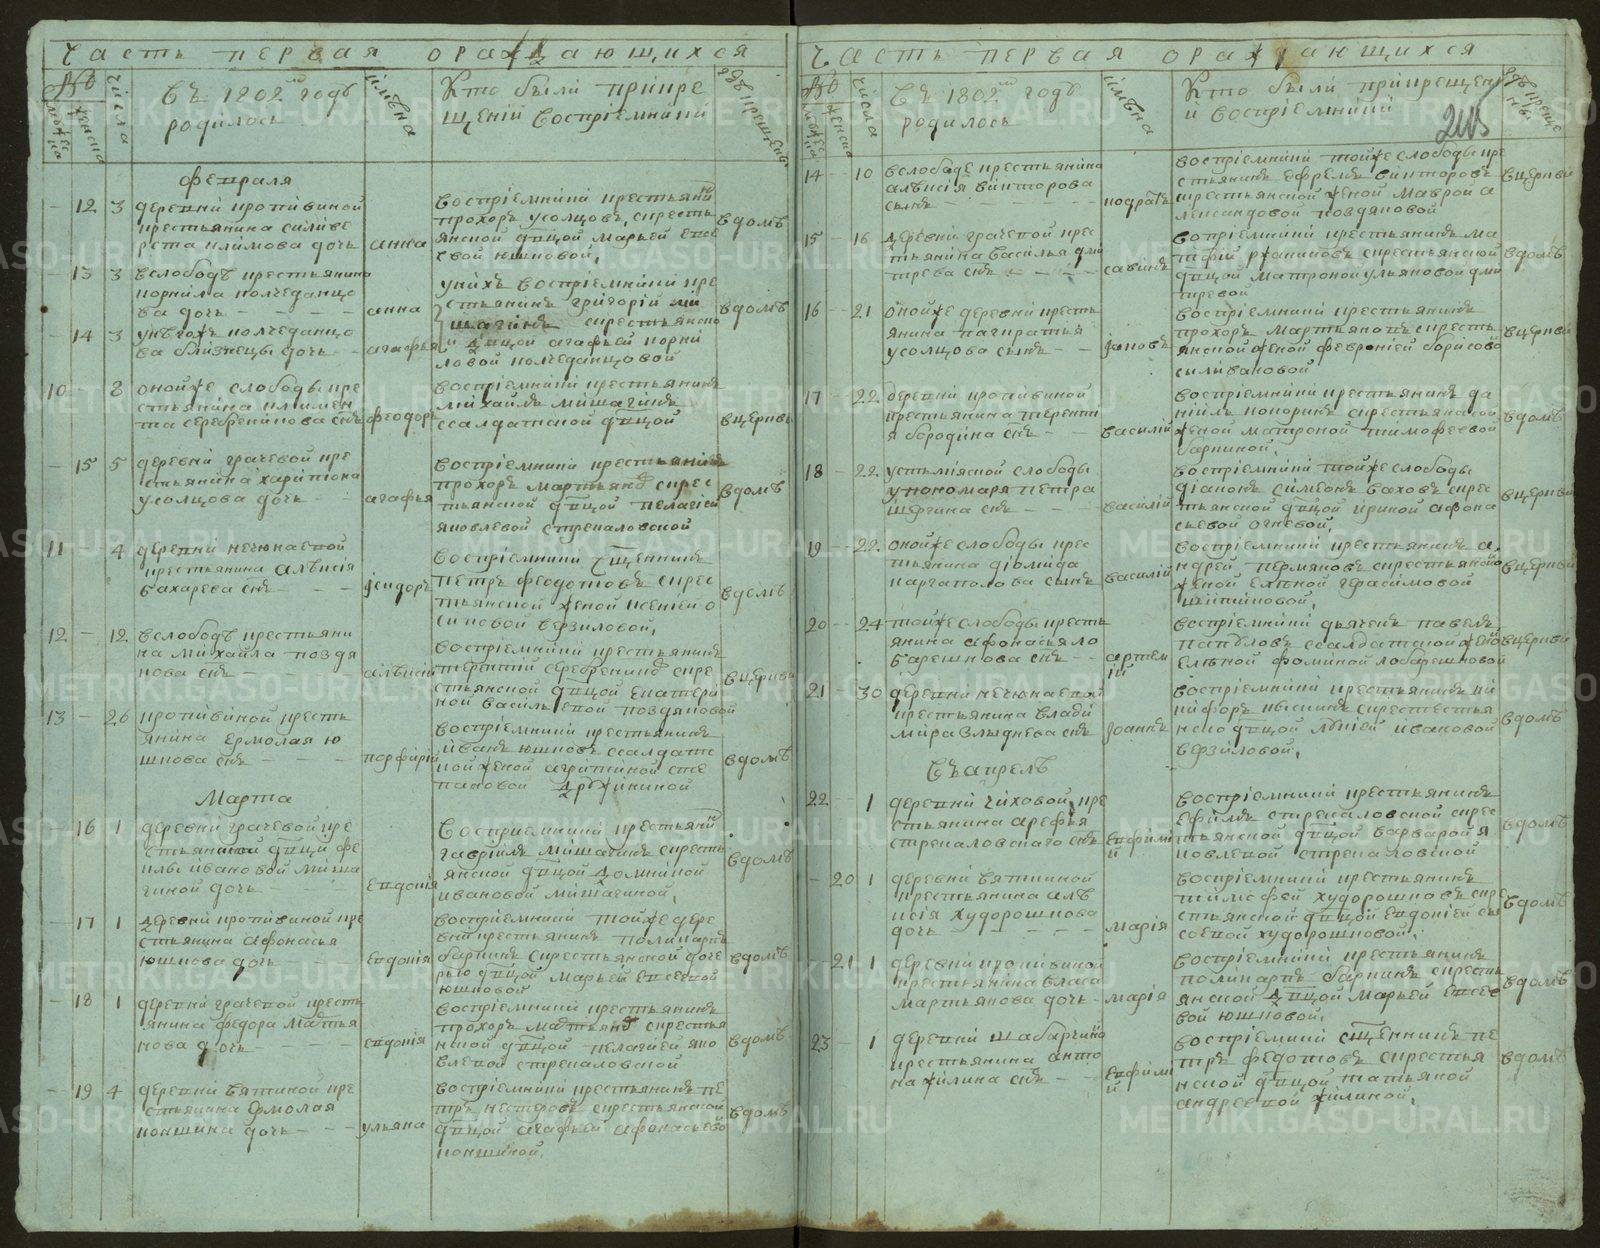 Часть первая ораждающихся
№
мужеска
женска
числа
Въ 1802мъ годѣ
родилось
имѣна
Кто были при кре
щеніи воспріемники
гдѣ крещены
февраля
12 3 деревни кротивиной
крестьянина силиве
рста климова дочь
анна
воспріемники крестьянинъ
прохоръ усолцовъ, скресть
янской дѣвцой марьей евсе
евой юшковой,
в домѣ
13 3 в слободѣ крестьянина
корнила колчеданцо
ва дочь
анна
у нихъ воспріемники кре
стьянинъ григорій ми
шагинъ скрестьянско
й дѣвцой агафьей корни
ловой колчеданцовой
в домѣ
14 3 у него жъ колчеданцо
ва близнецы дочь
агафья
10 8 оной же слободы кре
стьянина климен
та серебреникова снъ
феодоръ
воспріемники крестьянинъ
михаилъ мишагинъ
с салдатской дѣвцой
в церкви
15 5 деревни грачевой кре
стьянина харитона
усолцова дочь
агафья
воспріемники крестьянинъ
прохоръ мартьяновъ скрес
тьянской дѣвцой пелагіей
яковлевой стрекаловской
в домѣ
11 4 деревни нечюнаевой
крестьянина алѣксія
бахарева снъ
исидоръ
воспріемники сщенникъ
петръ феодотовъ скрес
тьянской женой ксеніей о
сиповой верзиловой,
в домѣ
12 12 в слободѣ крестьяни
на михаила поздя
кова снъ
алѣксій
воспріемники крестьянинъ
терентій серебрениковъ скре
стьянской дѣвцой екатери
ной васильевой поздяковой
в церкви
13 26 кротивиной кресть
янина ермолая ю
шкова снъ
порфирій
воспріемники крестьянинъ
иванъ юшковъ с салдатс
кой женой агрипиной сте
пановой дружининой
в домѣ
Марта
16 1 деревни грачевой кре
стьянской дѣвци фе
клы ивановой миша
гиной дочь
евдокія
Воспріемники крестьянинъ
гавріилъ мишагинъ скресть
янской дѣвцой домникой
ивановой мишагиной,
в домѣ
17 1 деревни кротивиной кре
стьянина афонасья
юшкова дочь
евдокія
воспріемники той же дере
вни крестьянинъ поликарпъ
баркинъ скрестьянской доче
рью дѣвцой марьей евсеевой
юшковой
в домѣ
18 1 деревни грачевой кресть
янина федора мартья
нова дочь
евдокія
воспріемники крестьянинъ
прохоръ мартьяновъ скрестья
нской дѣвцой пелагіей яко
влевой стрекаловской
в домѣ
19 4 деревни вяткиной кре
стьянина ермолая
коншина дочь
ульяна
воспріемники крестьянинъ пе
тръ нестеровъ скрестьянской
дѣвцой агафьей афонасьево
коншиной,
в домѣ
Часть первая ораждающихся
№
мужеска
женска
числа
Въ 1802мъ годѣ
родилось
имѣна
Кто были при крещени
и воспріемники
гдѣ креще
ны
14 10 в слободе крестьянина
алѣксія викторова
сынъ
кодратъ
воспріемники той же слободы кре
стьянинъ ефремъ викторовъ
с крестьянской женой маврой а
лександовой поздяковой
в церкви
15 16 деревни грачевой крес
тьянина василья дми
трева снъ
савинъ
воспріемники крестьянинъ ма
тфій ржаниковъ скрестьянской
дѣвцой матроной ульяновой дми
тревой
в домѣ
16 21 оной же деревни кресть
янина панкратья
усолцова сынъ
іаковъ
воспріемники крестьянинъ
прохоръ мартьяновъ скресть
янской женой февроніей борисово
силивановой
в церкви
17 22 деревни кротивиной
крестьянина теренти
я бородина снъ
василій
воспріемники крестьянинъ да
ніилъ кокоринъ скрестьянской
женой матроной тимофеевой
баркиной,
в домѣ
18 22 устьмиясской слободы
упономаря петра
шергина снъ
василій
воспріемники той же слободы
діаконъ симеонъ ваховъ скрес
тьянской дѣвцой ириной афона
сьевой огневой,
в церкви
19 22 оной же слободы крес
тьянина діомида
каргаполова сынъ
василій
воспріемники крестьянинъ а
ндрей пермяковъ скрестьянско
женой еленой герасимовой
шипиновой,
в церкви
20 24 той же слободы кресть
янина афонасья ло
барешкова снъ
артем
ій
воспріемники дьячекъ павелъ
папуловъ с салдатской женой
еленой фоминой лобарешковой
в церкви
21 30 деревни нечюнаевой
крестьянина влади
мира злыднева снъ
іоаннъ
воспріемники крестьянинъ ни
кифоръ кысинъ скрестестья
нско дѣвцой лукіей ивановой
верзиловой,
в домѣ
Въ апрелѣ
22 1 деревни чиховой, кре
стьянина арефья
стрекаловскаго снъ
евфими
й
воспріемники крестьянинъ
ефимъ стрекаловской скрес
тьянской дѣвцой варварой я
ковлевой стрекаловской
в домѣ
20 1 деревни вяткиной
крестьянина алѣ
ксія худорошкова
дочь
марія
воспріемники крестьянинъ
тимофей худорошковъ скре
стьянской дѣвцой евдокіей сы
соевой худорошковой,
в домѣ
21 1 деревни кротивиной
крестьянина власа
мартьянова дочь
марія
воспріемники крестьянинъ
поликарпъ баркинъ скресть
янской дѣвцой марьей евсее
вой юшковой,
в домѣ
23 1 деревни шабарчино
крестьянина анто
на жилина снъ
евфими
й
воспріемники сщенникъ пе
тръ федотовъ скрестья
нской дѣвцой татьяной
андреевой жилиной,
в домѣ
METRIKI.GASO-URAL.RU